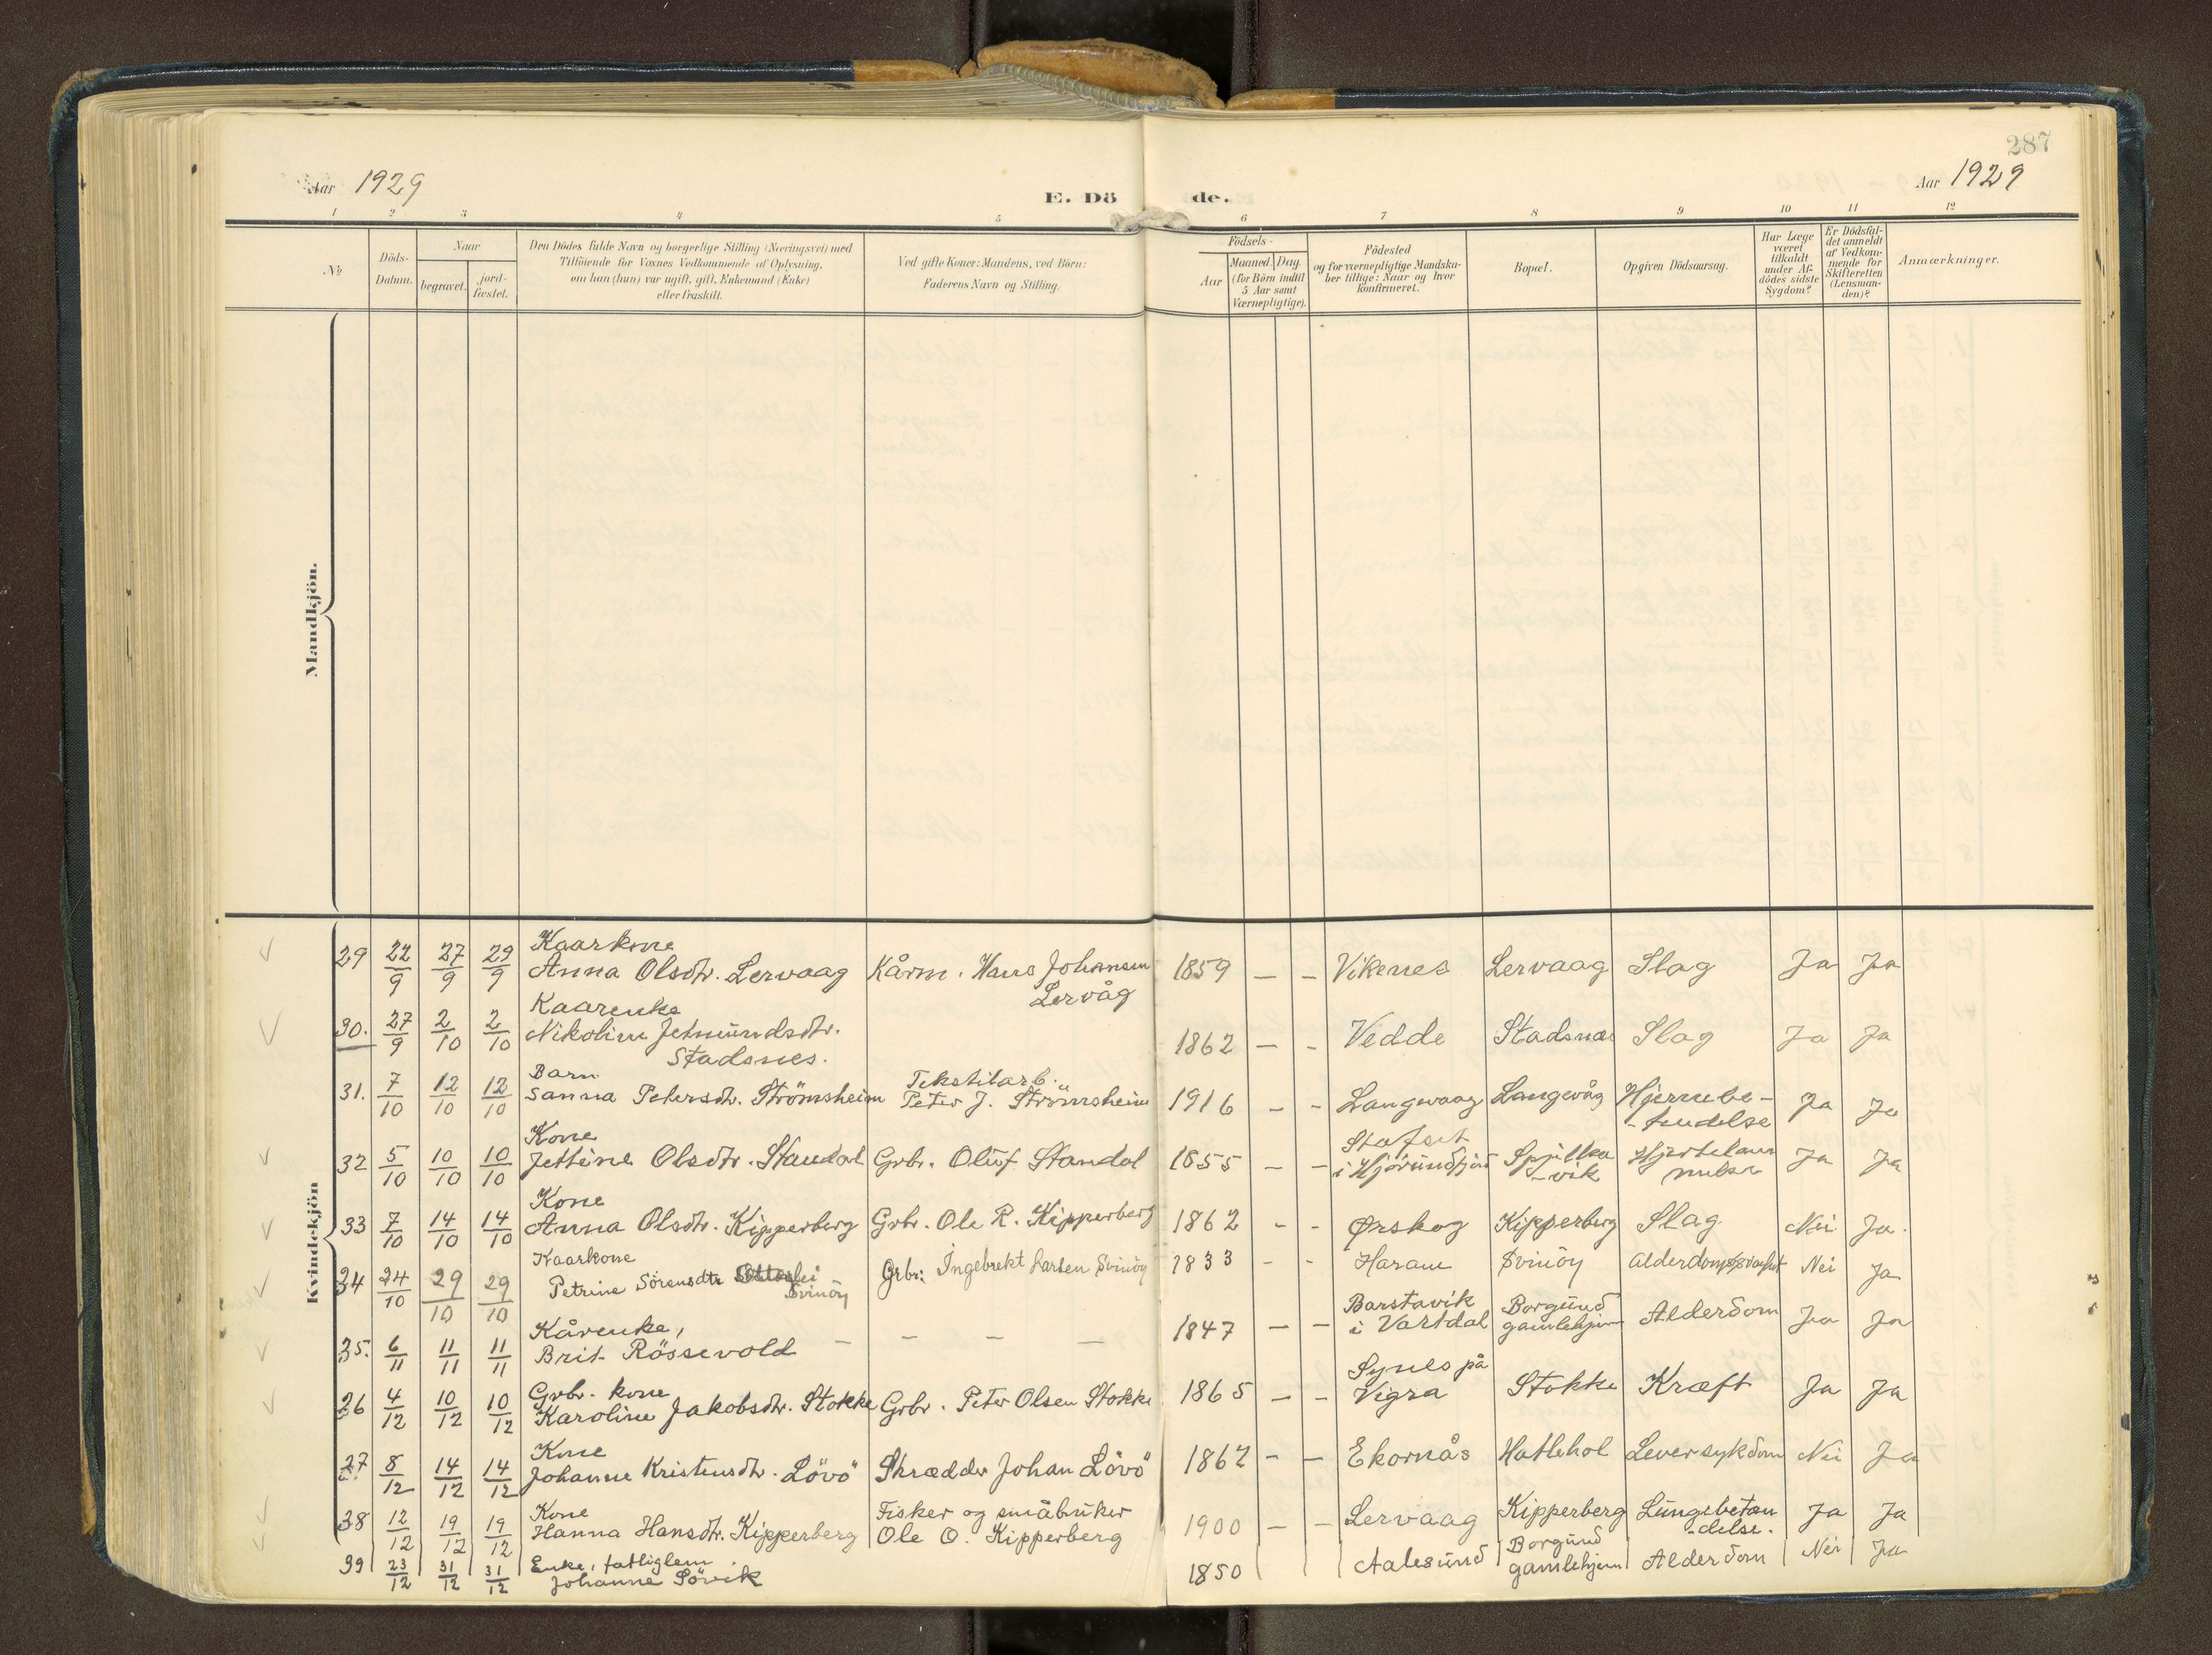 287
Aar 1929
E. Dö
de.
Aar 1929
1 2 3 4 5 6 7 8 9 10 11 12
No
Döds-
Datum.
Naar
begravet.
jord-
fæstet.
Den Dödes fulde Navn og borgerlige Stilling (Næringsvei) med
Tilföiende for Voxnes Vedkommende af Oplysning,
om han (hun) var ugift, gift, Enkemand (Enke)
eller fraskilt.
Ved gifte Koner: Mandens, ved Börn:
Faderens Navn og Stilling.
Födsels-
Aar
Maaned. Dag.
(for Börn indtil
5 Aar samt
Værnepligtige).
Födested
og for værnepligtige Mandska-
ber tillige: Naar og hvor
konfirmeret.
Bopæl.
Opgiven Dödsaarsag.
Har Læge
været
tilkaldt
under Af-
dödes sidste
Sygdom?
Er Dödsfal-
det anmeldt
af Vedkom-
mende for
Skifteretten
(Lensman-
den)?
Anmærkninger.
Mandkjön.
Kvindekjön
Kaarkone
29 22/9 27/9 29/9 Anna Olsdtr. Lervaag Kårm. Hans Johansen 1859 — — Vikenes Lervaag Slag Ja Ja
Lervåg
Kaarenke
30. 27/9 2/10 2/10 Nikoline Jetmundsdtr. 1862 — - Vedde Stadsnæs Slag Ja Ja
Stadsnes.
Barn Tekstilarb.
31. 7/10 12/10 12/10 Sanna Petersdtr. Strömsheim Peter J. Strömsheim 1916 - - Langevaag Langevåg Hjernebe- Ja Ja
-tendelse
Kone Stafset
32 5/10 10/10 10/10 Jettine Olsdtr. Standal Grbr. Oluf Standal 1855 — — i Hjörundfjord Spjelka Ja Ja
-vik
Kone
33 7/10 14/10 14/10 Anna Olsdtr. Kipperberg Grbr. Ole R. Kipperberg 1862 - - Ørskog Kipperberg Slag Nei Ja.
Kaarkone
34 24/10 29/10 29/10 Petrine Sörensdtr Svinöy Grbr: Ingebrekt Larsen Svinöy 1833 - - Haram Svinöy Alderdomssvakhet Nei Ja
Kårenke, Barstavik Borgund
35. 6/11 11/11 11/11 Brit Rössevold — — — — 1847 — — i Vartdal gamlehjem Alderdom Ja Ja
Grbr. kone Synes på
36 4/12 10/12 10/12 Karoline Jakobsdtr. Stokke Grbr. Peter Olsen Stokke 1865 — - Vigra Stokke Kræft Ja Ja
Kone
37 8/12 14/12 14/12 Johanne Kristensdtr. Lövö Skrædder Johan Lövö 1862 - — Ekornås Hatlehol Leversykdom Nei Ja
Kone Fisker og småbruker
38 12/12 19/12 19/12 Hanna Hansdtr. Kipperberg Ole O. Kipperberg 1900 — — Lervaag Kipperberg Lungebetæn Ja Ja
-delse.
Enke, fattiglem Borgund
39 23/12 31/12 31/12 Johanne Sövik 1850 Aalesund gamlehjem Alderdom Nei Ja